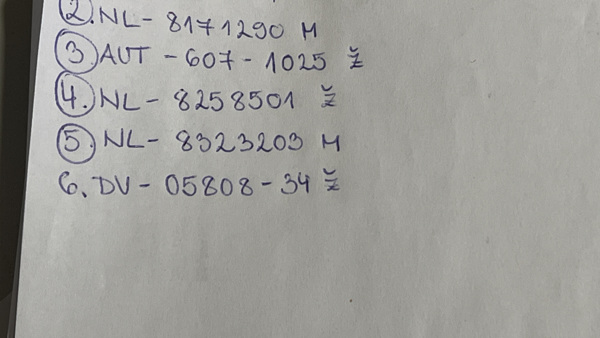 2. NL- 8171290 M
3 AUT - 607 - 1025 Ž
4. NL - 8258501 Ž
5. NL- 8323203 M
6. DV - 05808 - 34 Ž